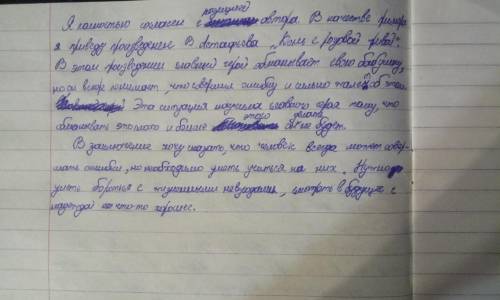 Я полностью согласен с позицией автора. В качестве примера
я приведу произведение В. Астафьева „Конь с розовой гривой".
В этом произведении главный герой обманывает свою бабушку,
но он вскоре понимает, что совершил ошибку и сильно жалеет об этом.
Эта ситуация научила главного героя тому, что
обманывать это плохо и больше этого делать он не будет.
В заключение хочу сказать, что человек всегда может совер-
шать ошибки, но необходимо уметь учиться на них. Нужно
уметь бороться с жизненными невзгодами, смотреть в будущее с
надеждой на что-то хорошее.